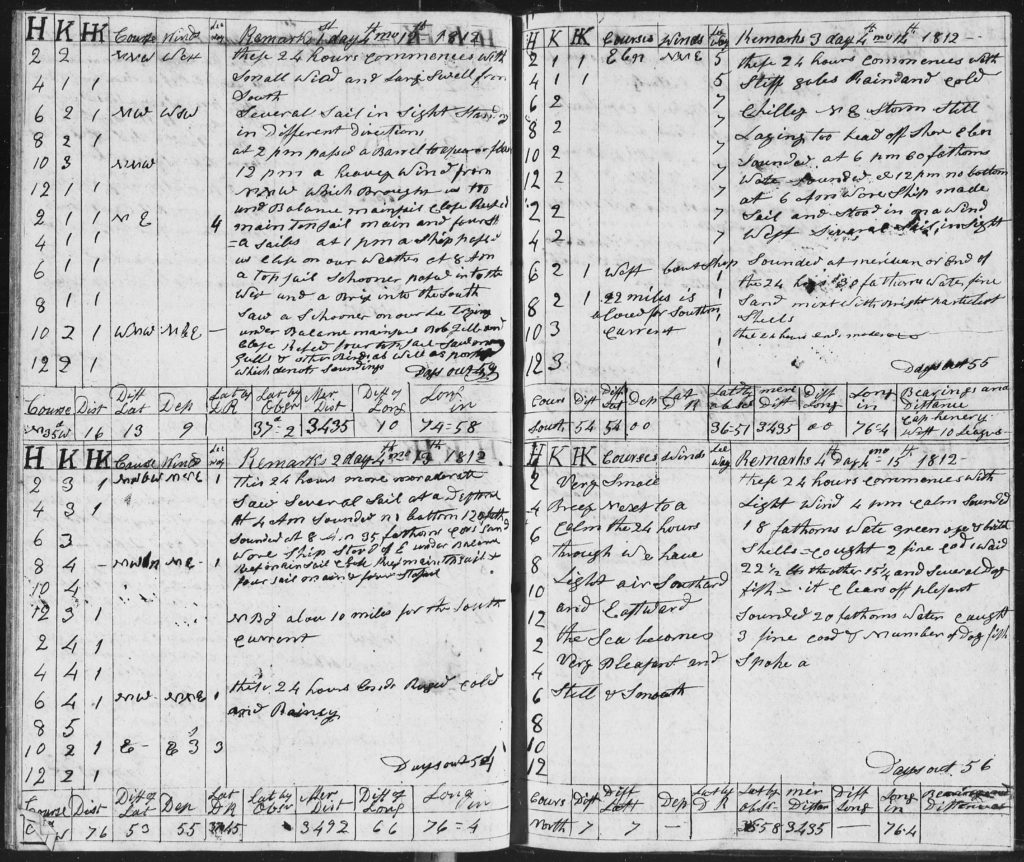 H K HK Course Winds Lee way Remarks 1st day 4th mo 12th 1812
2 2 NNW West these 24 hours commences with
4 1 1 Small Wind and Large Swell from
South
6 2 1 NW WSW Several Sail in Sight Standing
8 2 1 in Different directions
10 3 NNW at 2 pm passed a Barrel
12 1 1 12 pm a heavey Wind from
NNW which Brought us too
2 1 1 NE 4 und Balance mainsail Close Reefed
main topsail main and
4 1 1 Sailes at 1 pm a Ship passed
6 1 1 us Close on our Weather at 8 Am
a top sail Schooner passed into the
8 1 1 West and a Brix into the South
Saw a Schooner on our Lee Laying
10 2 1 WNW NNE – under Balance mainsail Bob Jibb and
Close Refed four top sail – Saw
12 2 1 Gulls & other Birds as well as
which denots Soundings Days out
Course Dist Diff Lat Dep Lat by DR Lat by Obser Mer Dist Diff of Long Long in
N35W 16 13 9 37=2 3435 10 74=58
H K HK Course Winds Lee way Remarks 2 day 4th mo 13th 1812
2 3 1 1 This 24 hours more moaderate
4 3 1 Saw Several Sail at a Distance
At 4 Am Sounded no bottom 120 fath
6 3 Sounded at 8 A m 35 fathoms Sand
Wore Ship Stood of E under Balance
8 4 1 Reef mainsail & main top sail &
10 4 four sail on main & four Staysail
12 3 1 NBd alow 10 miles for the South
2 4 1 Current
4 4 1
6 4 1 NW NNE 1 these 24 hours Ends Ruged cold
and Rainey
8 5
10 2 1 E – E 3 3
12 2 1 Days out 54
Course Dist Diff of Lat Dep Lat DR Lat by Ober Mer Dist Diff of Long Long in
W 76 53 55 3492 66 76=4
H K HK Courses Winds Lee way Remarks 3 day 4th mo 14th 1812
2 1 1 EbN NNE 5 these 24 hours commences with
4 1 1 5 Stiff gales Rain and cold
6 2 5 Chilley NE Storm Still
8 2 7 Laying too head off Shore EbN
10 2 7 Sounded at 6 pm 60 fathoms
12 2 7 Wate Sounded at 12 pm no bottom
at 6 Am Wore Ship made
2 2 7 Sail and Stood in on a Wind
4 2 7 West Several Sails in Sight
6 2 1 West bout Ship Sounded at meridian or End of
the 24 hours 30 fathoms Water fine
8 2 1 22 miles is 1 Sand mixt with Bright particlest
alowd for Southern Shels
10 3 Current 1 these 24 hours ends moderate
12 3 1 Days out 55
Cours Dist Diff Lat Dep Lat DR Lat by obser meri dist Diff Long Long in Bearings and Distance
South 54 54 00 36-51 3435 00 76=4 Cap henery West 10 Leagus
H K HK Courses Winds Lee Way Remarks 4th Day 4th mo 15th 1812
2 Very Small these 24 hours commences with
4 Breez Nexst to a Light Wind 4 pm calm Sounded
6 Calm the 24 hours 18 fathoms wate green
8 through We have Shells – caught 2 fine cod 1 waid
10 Light air Southard 22½ lb the other 15¼ and Several dog
and Eastward fish – it Clears off plesant
12 Sounded 20 fathoms water caught
2 the Sea becomes 3 fine cood & Number of dog fish
4 Very Pleasant and Spoke a
6 Still & Smooth
8
10
12 Days out 56
Cours Dist Diff Latt Dep Lat by DR Lat by obser mer Distan Diff Long Long in Bearings and Distances
North 7 7 – 3558 3435 – 76-4